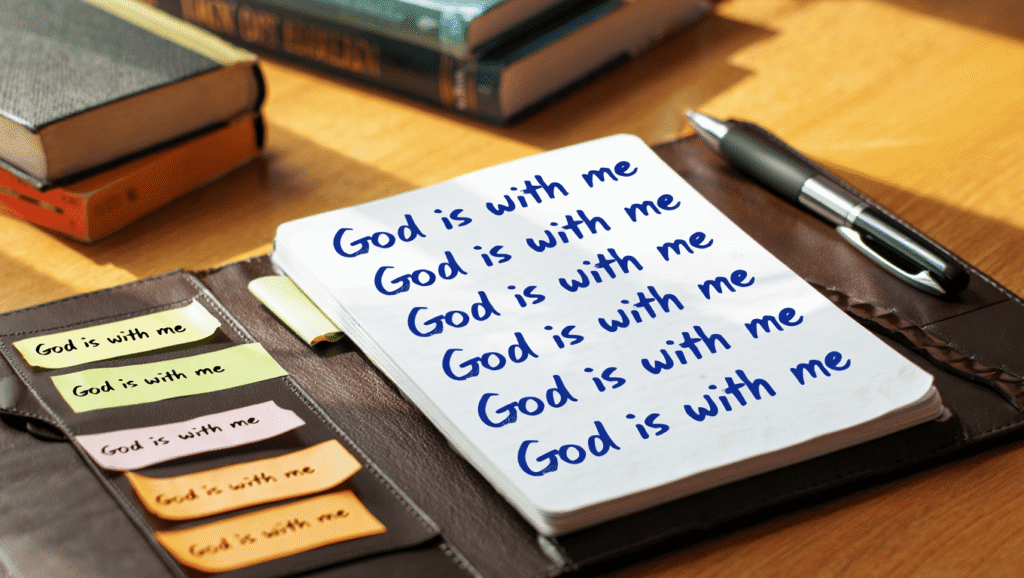 God is with me
God is with me
God is with me
God is with me
God is with me
God is with me
God is with me
God is with me
God is with me
God is with me
God is with me